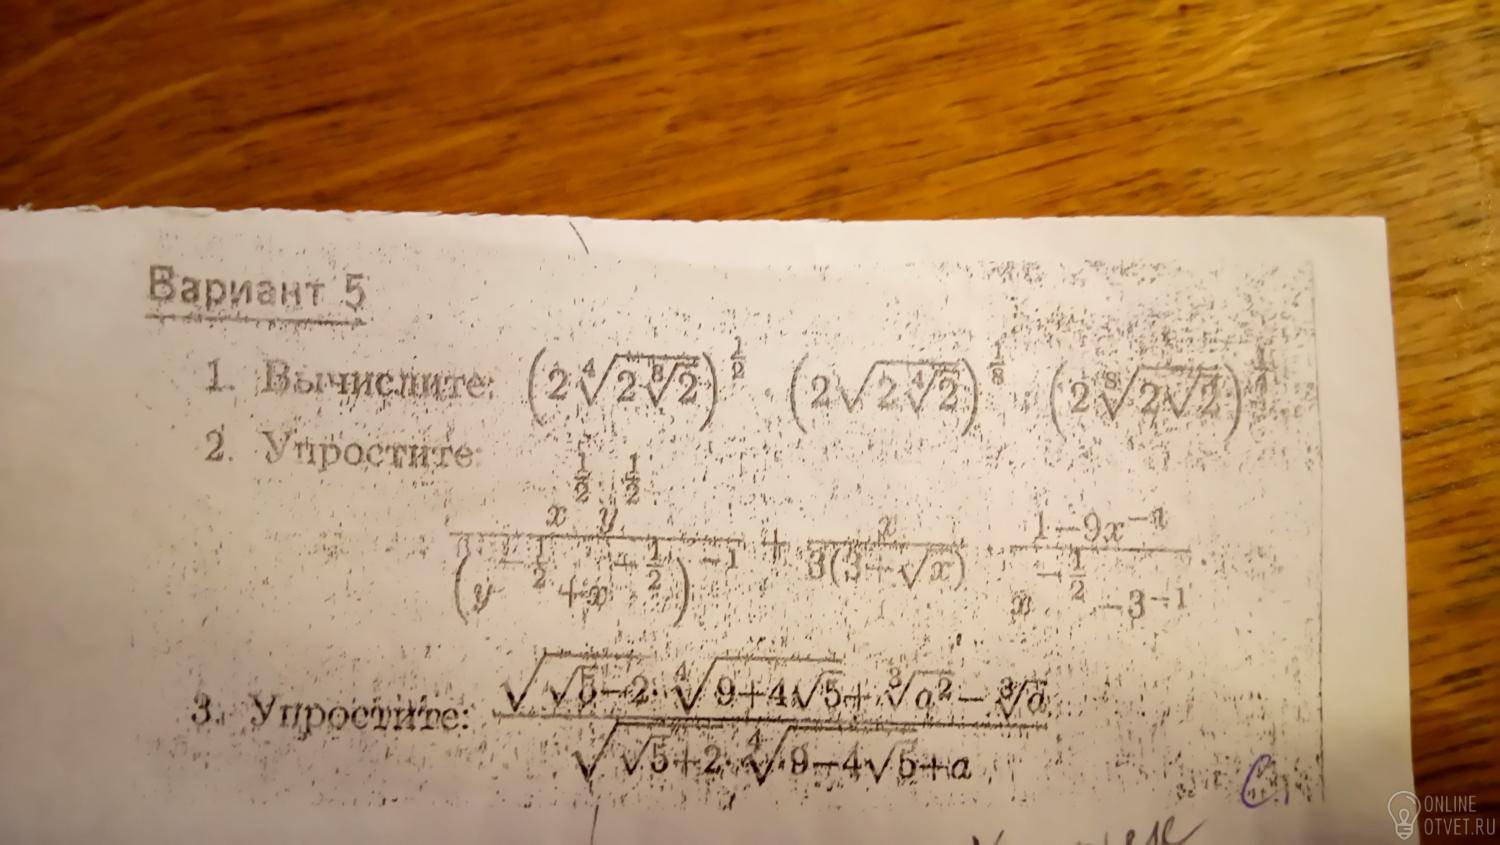 Вариант 5
1. Вычислите: (2∜(2⁸√2))^(1/2) · (2√(2∜2))^(1/8) · (2⁸√(2√2))
2. Упростите:
x^(1/2) y^(1/2) / (y^(-1/2) + x)^(-1) + x / 3(3-√x) · (1-9x^(-1)) / (x^(-1/2) - 3^(-1))
3. Упростите: (√(√5-2) · ∜(9+4√5) + ∛a² - ∛a) / (√(√5+2) · ∜(9-4√5) + a)
C.
ONLINE
OTVET.RU